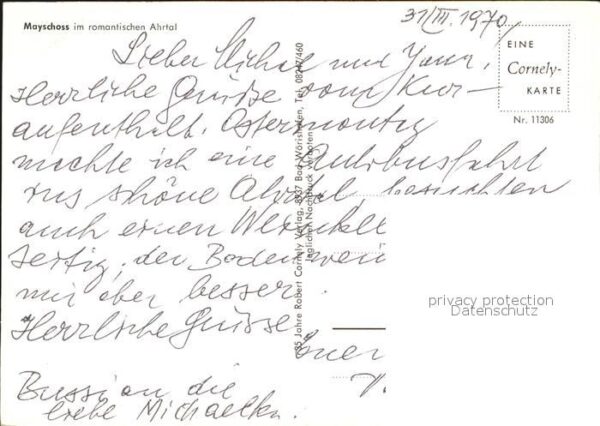 Mayschoss im romantischen Ahrtal
31/III. 1970
EINE
Cornely-
KARTE
Nr. 11306
Lieber Michael und
Herrliche Grüße vom Kur-
aufenthalt. Ostermontag
machte ich eine Autobusfahrt
ins schöne Ahrtal, besuchten
auch einen Weinkell
der Bodenwein
mir aber besser.
Herrliche Grüsse
Euer
Bussi an die
liebe
35 Jahre Robert Cornely Verlag, 8937 Bad Wörishofen, Tel. 08247/460
Jeglicher Nachdruck verboten
privacy protection
Datenschutz